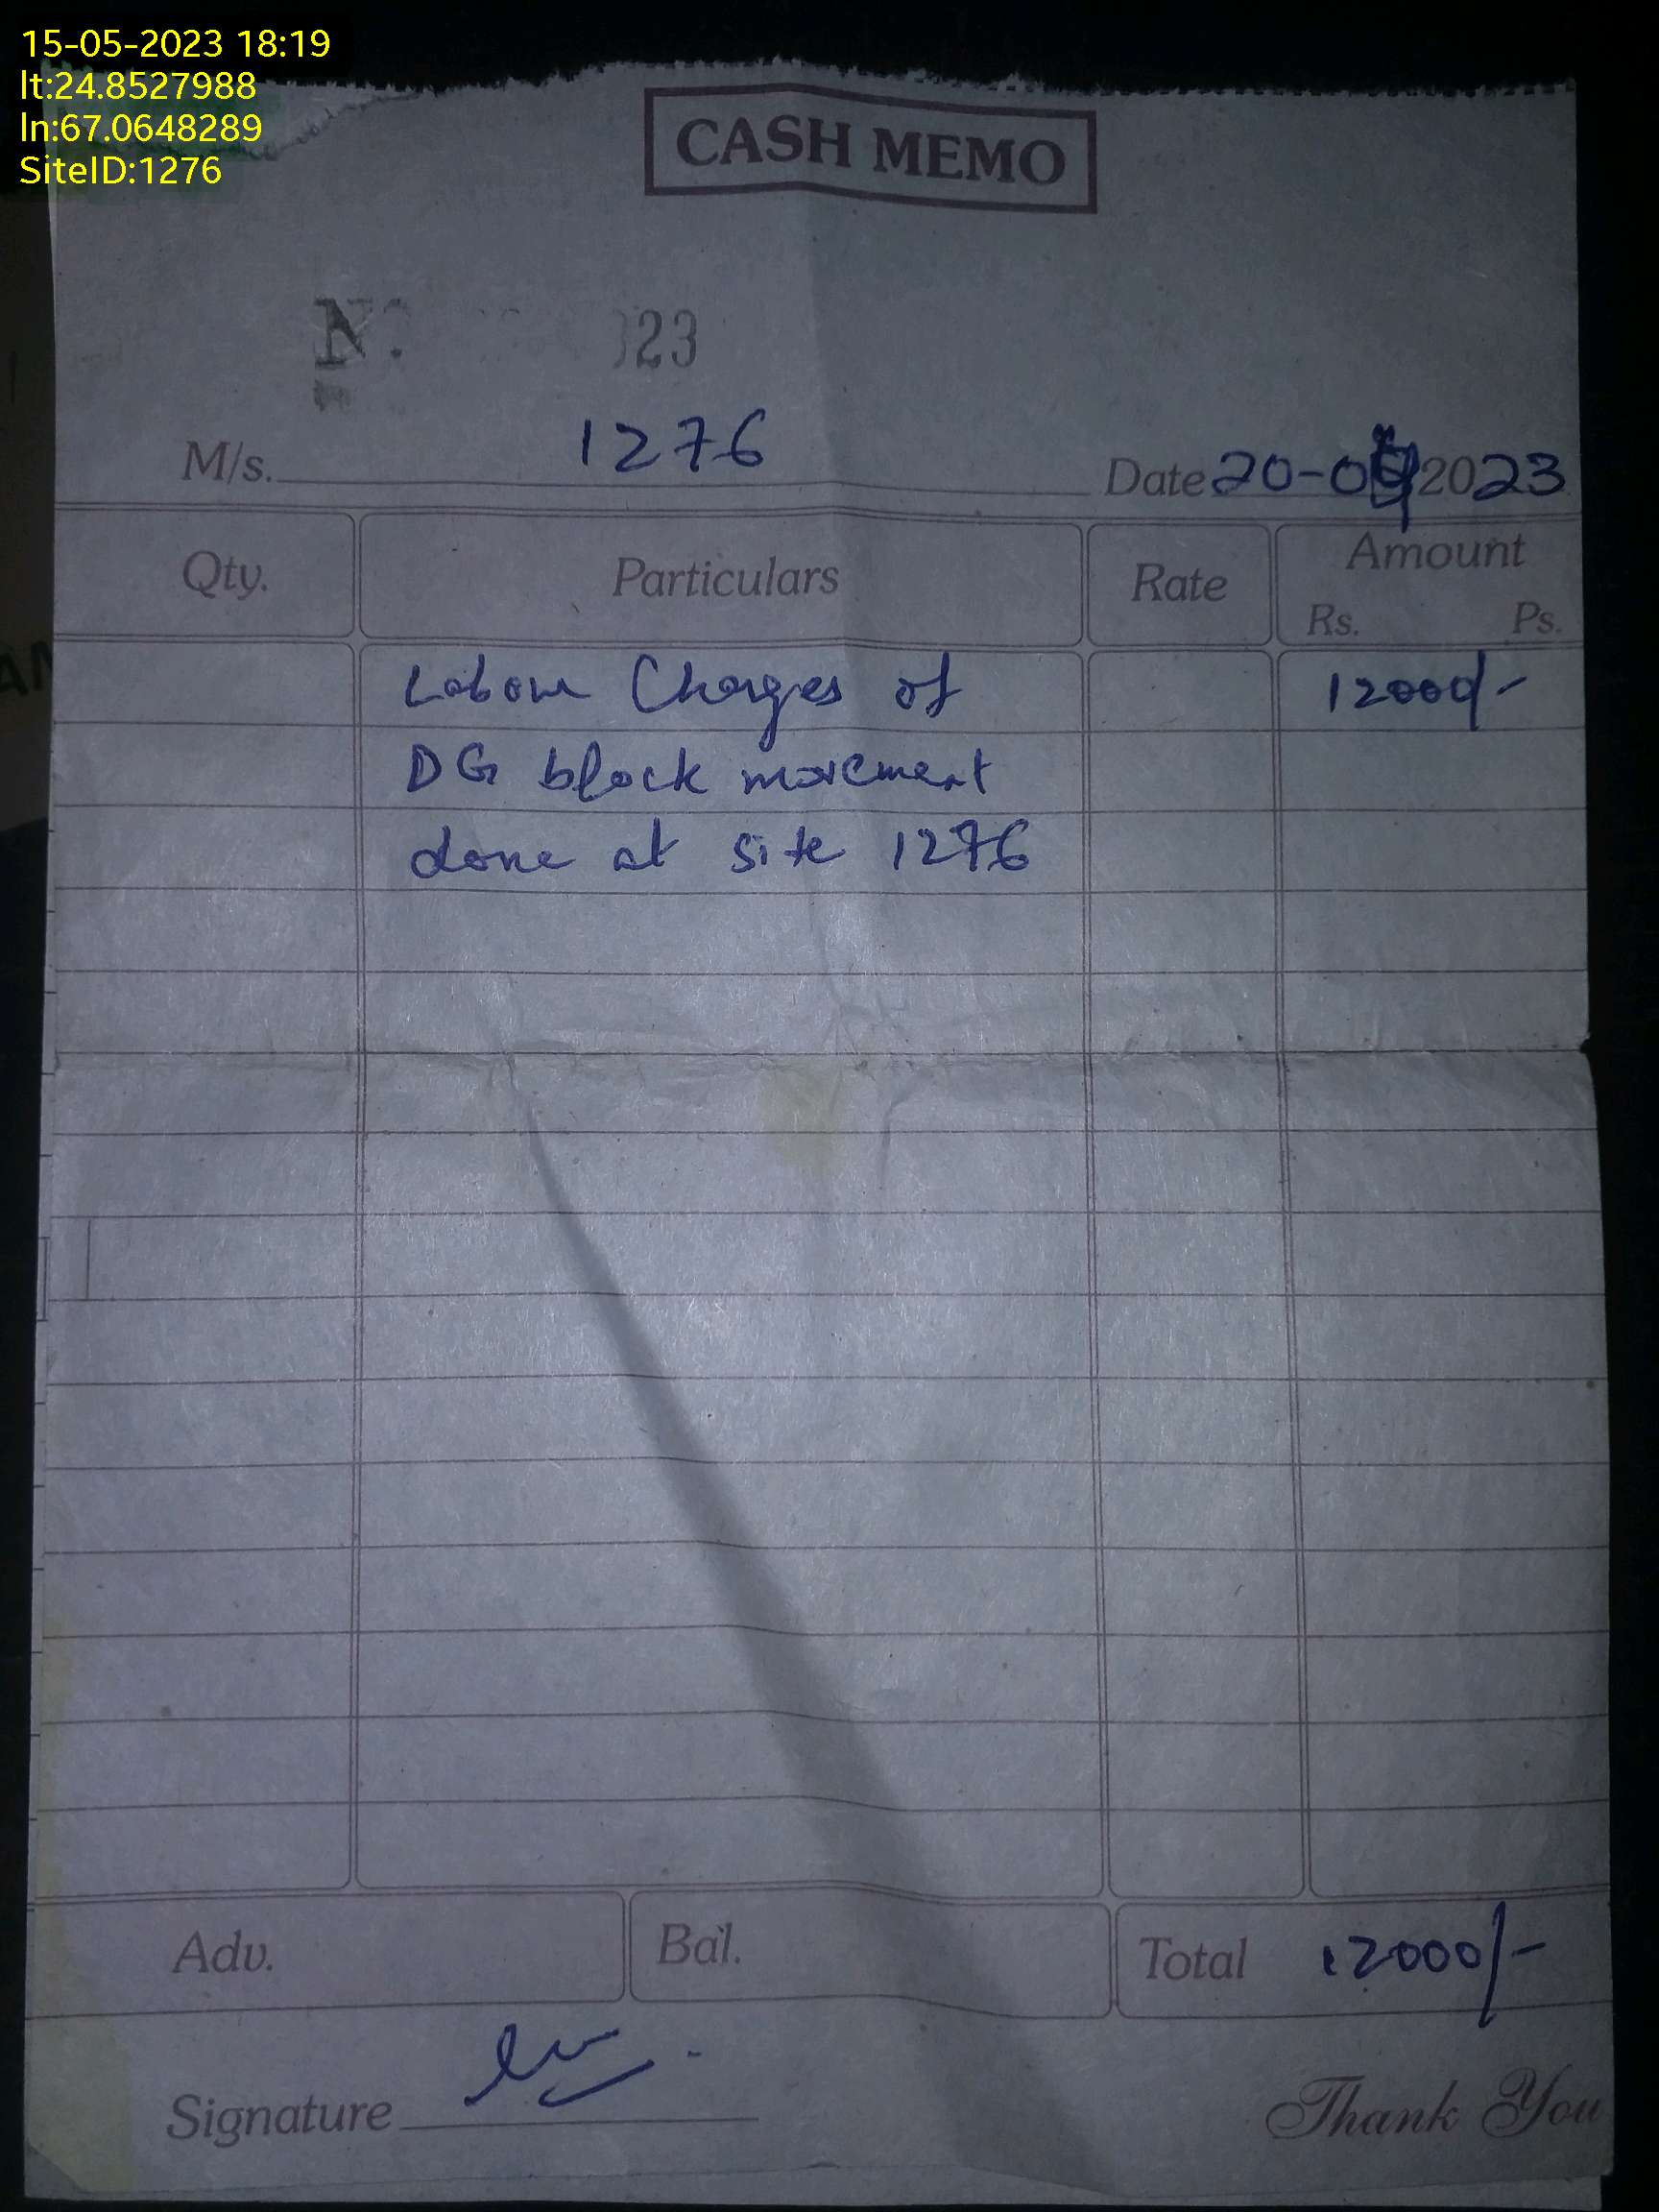 15-05-2023 18:19
lt:24.8527988
ln:67.0648289
SiteID:1276
CASH MEMO
N. 23
M/s. 1276
Date 20-0 2023
Qty. Particulars Rate Amount
Rs. Ps.
Labour Charges of 12000/-
DG block movement
done at site 1276
Adv. Bal. Total 12000/-
Signature
Thank You